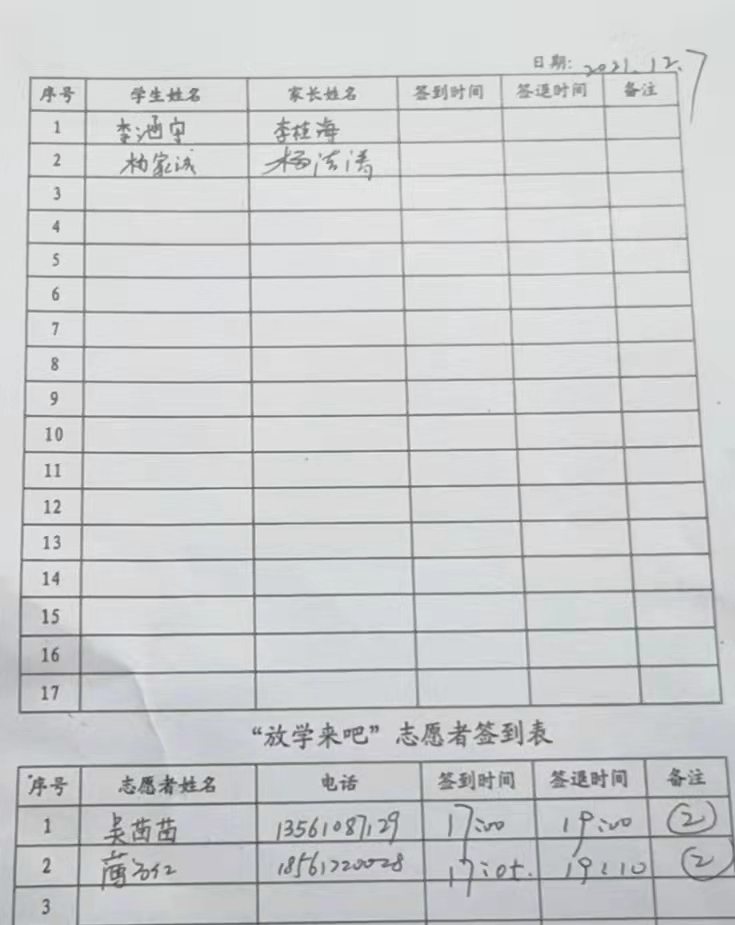 日期: 2021.12.7
序号 学生姓名 家长姓名 签到时间 签退时间 备注
1 李涵宇 李桂海
2 杨家诚 杨洪涛
3
4
5
6
7
8
9
10
11
12
13
14
15
16
17
“放学来吧”志愿者签到表
序号 志愿者姓名 电话 签到时间 签退时间 备注
1 吴茜茜 13561087129 17:00 19:00 ②
2 18561220028 17:05. 19:10 ②
3